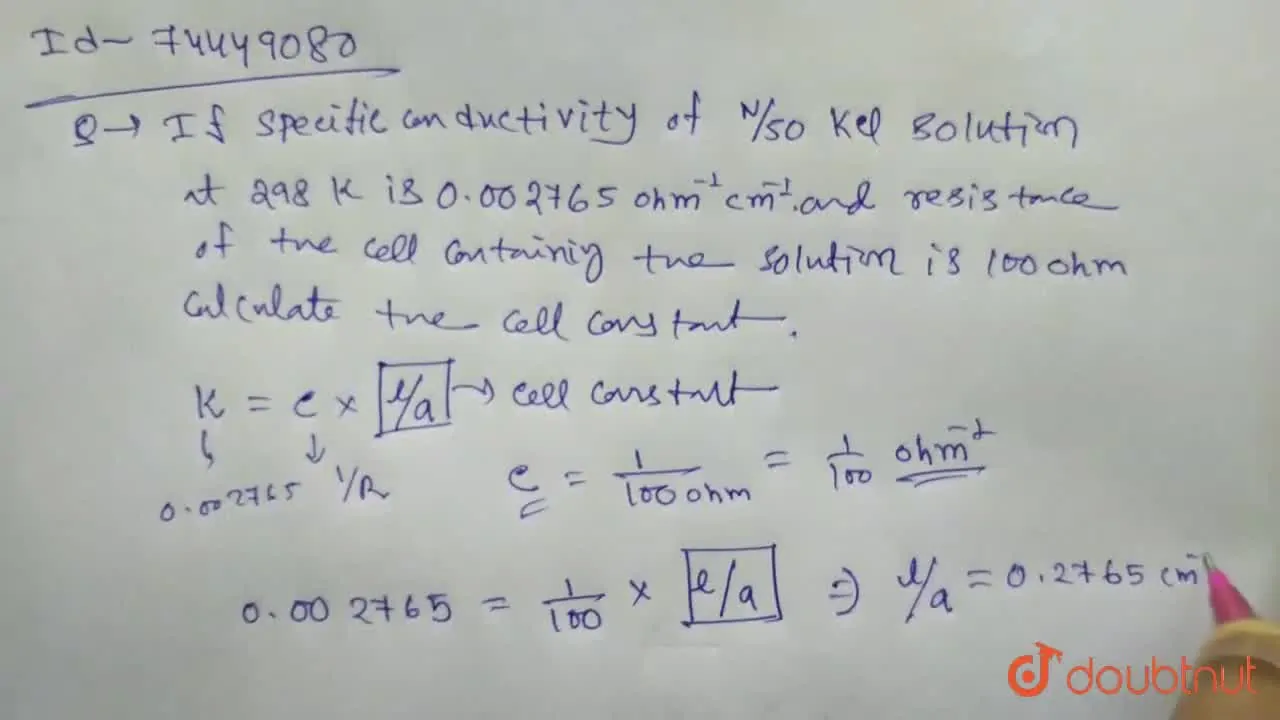 Id~ 74449080
Q→ If specific conductivity of N/50 Kcl solution
at 298 K is 0.002765 ohm⁻¹ cm⁻¹. and resistance
of the cell containing the solution is 100 ohm
calculate the cell constant.
K = c × l/a → cell constant
0.002765 1/R c = 1/100 ohm = 1/100 ohm⁻¹
0.002765 = 1/100 × l/a ⇒ l/a = 0.2765 cm⁻
doubtnut